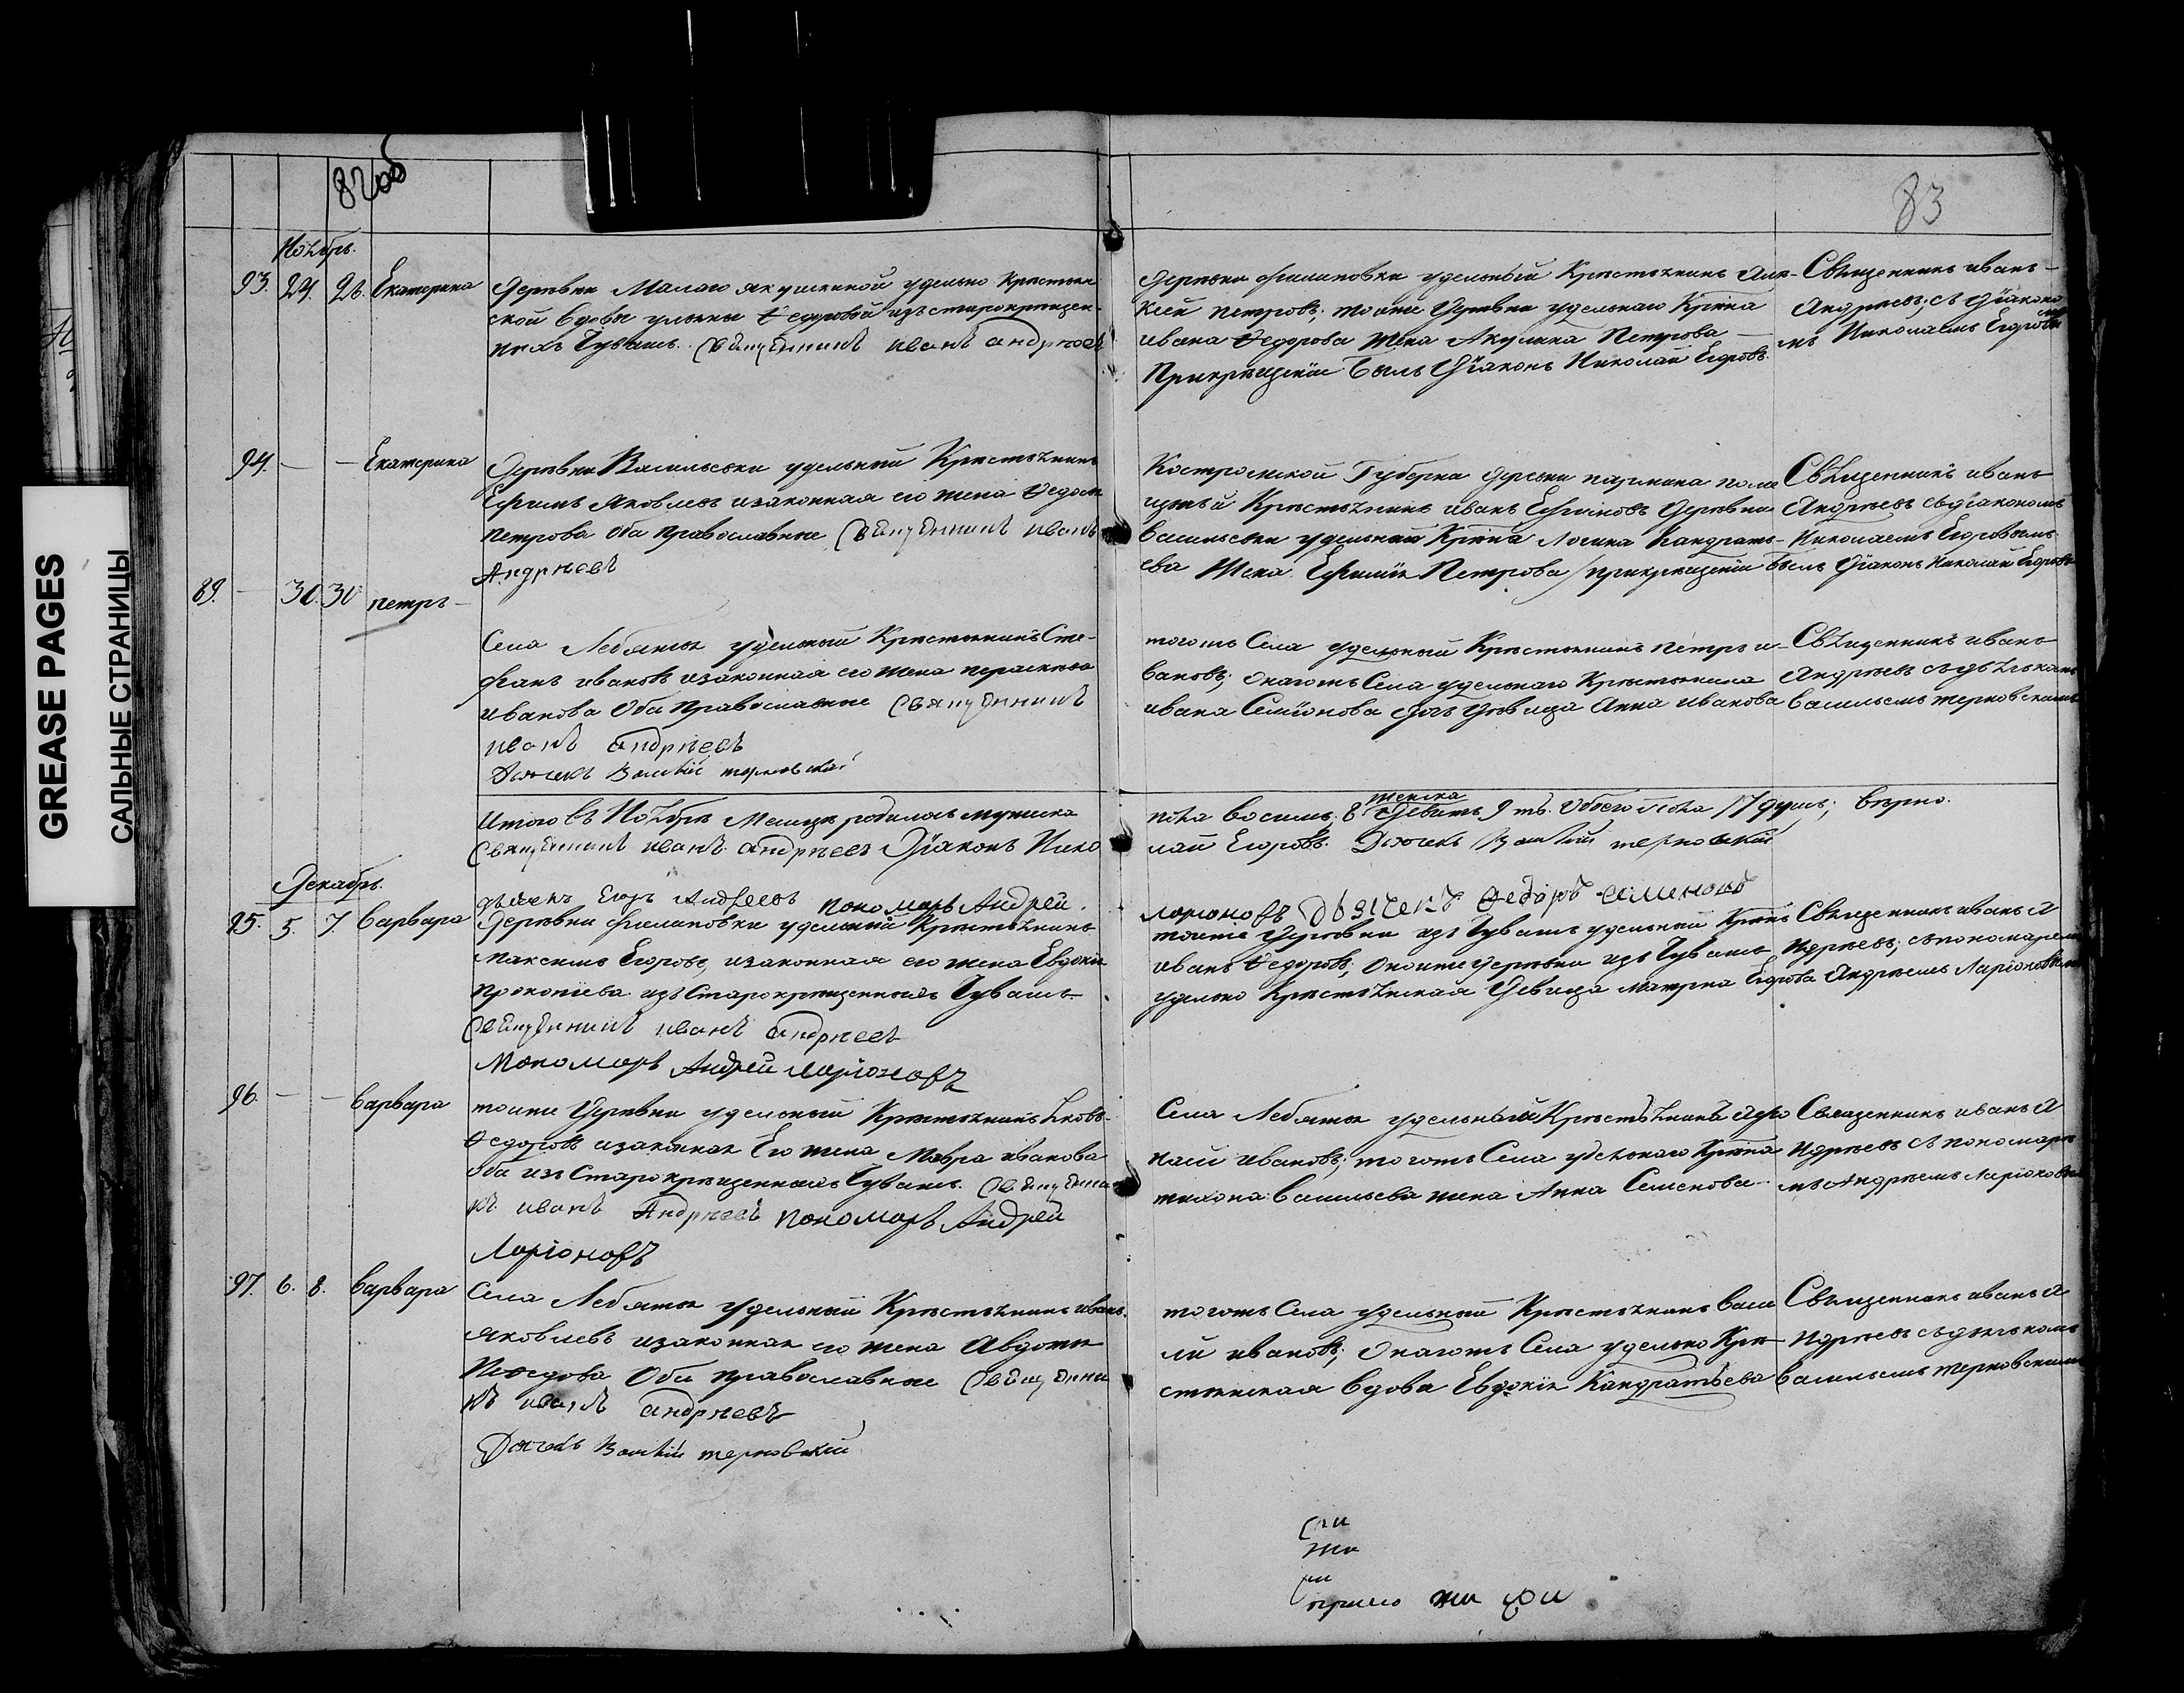 82об
83
GREASE PAGES
САЛЬНЫЕ СТРАНИЦЫ
Ноябрь.
93. 24. 26. Екатерина
Деревни Малаго Якушкиной удельно Крестьян
ской вдовы ульяны Ѳедоровой изъ старокрещен-
ныхъ Чувашъ. Священникъ иванъ андреевъ
Деревни филиповки удельный Крестьянинъ Але-
ксей петровъ; тоиже Деревни удельнаго Крѣна
ивана Ѳедорова жена Акулина Петрова —
Прикрещенiи былъ Дiаконъ Николай Егоровъ.
Священникъ иванъ
Андреевъ; съ Дiаконо
мъ Николаемъ Егоровы
94. — — Екатерина
Деревни Васильевки удельный Крестьянинъ
Ефимъ Яковлевъ изаконная его жена Ѳедось
петрова оба православные Священникъ иванъ
Андреевъ
Костромской Губерни деревни поме
щичьй Крестьянинъ иванъ Ефимовъ Деревни
васильевки удельнаго Крѣна Логина Кандрать-
ева Жена Ефимiя Петрова прикрещенiи былъ Дiаконъ Николай Егоровъ
Священникъ иванъ
Андреевъ съдiакономъ
Николаемъ Егоровымъ
89. — 30. 30 петръ —
Села Лебяжья удельный Крестьянинъ Сте-
фанъ ивановъ изаконная его жена параскева
иванова Оба православные Священникъ
иванъ андреевъ
Дьячекъ Василiй терновскай
тогожъ Села удельный Крестьянинъ петръ и-
вановъ; Онагожъ Села удельнаго Крестьянина
ивана Семiонова дочь Девица Анна иванова
Священникъ иванъ
Андреевъ съ дьячькомъ
Васильемъ терновскимъ
Итого въ Ноябре Месяце родилось мужеска
пола восемь. 8 женска Девять 9 тъ. Обоего пола 17 душъ; верно.
Священникъ иванъ андреевъ Дiаконъ Нико
лай Егоровъ. Дьячекъ Василiй терновскiй
дьячекъ Егоръ Андреевъ пономарь Андрей
Ларiоновъ Дьячекъ Ѳедоръ Семеновъ
Декабрь.
95. 5. 7. Варвара
Деревни филиповки удельный Крестьянинъ
Максимъ Егоровъ, изаконная его жена Евдокiя
прокопiева изъ Старокрещенныхъ Чувашъ
Священникъ иванъ андреевъ
Пономарь Андрей Ларiоновъ
тоижъ Деревни изъ Чувашъ удельный Крѣнъ
иванъ Ѳедоровъ; Оноиже деревни изъ Чувашъ
удельно Крестьянская Девица матрена Егорова
Священникъ иванъ А
ндреевъ; съ пономаремъ
Андреемъ Ларiоновымъ
96. — — Варвара
тоиже Деревни удельный Крестьянинъ Яковъ
Ѳедоровъ изаконная Его жена Мавра иванова
оба изъ Старокрещенныхъ Чувашъ. Священни
къ иванъ Андреевъ пономарь Андрей
Ларiоновъ
Села Лебяжья удельный Крестьянинъ Афо
насiи ивановъ; тогожъ Села удельнаго Крѣна
тихона Васильева жена Анна Семенова
Священникъ иванъ А
ндреевъ съ пономаре
мъ Андреемъ Ларiоновым
97. 6. 8. Варвара
Села Лебяжья удельный Крестьянинъ иванъ
Яковлевъ изаконная его жена Авдотья
Оба православные Священни
къ иванъ андреевъ
Дьячекъ Василiй терновскiй
тогожъ Села удельный Крестьянинъ Васи
лiи ивановъ; Онагожъ Села удельно Кре-
стьянская вдова Евдокiя Кандратьева
Священникъ иванъ А
ндреевъ съ дьячькомъ
Васильемъ терновскимъ